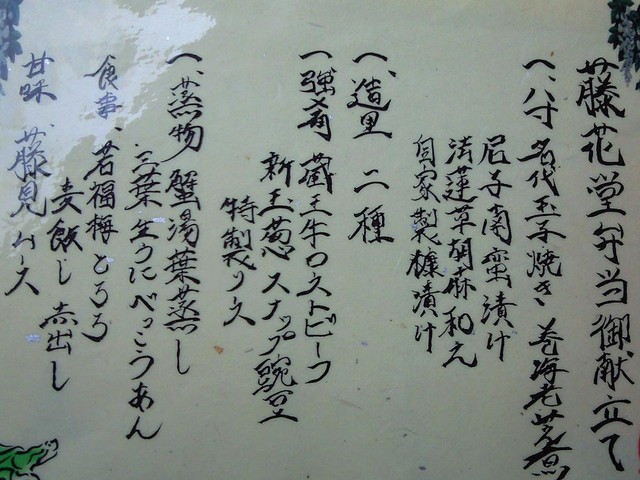 藤花堂弁当御献立て
一、八寸 名代玉子焼き 巻海老芝煮
尼子南蛮漬け
法蓮草胡麻和え
自家製糠漬け
一、造里 二種
一、強肴 蔵王牛ロストビーフ
新玉葱 スナップ豌豆
特製ソース
一、蒸物 蟹湯葉蒸し
三葉 生うに べっこうあん
食事、若福梅とろろ
麦飯し 赤出し
甘味、藤見ムース